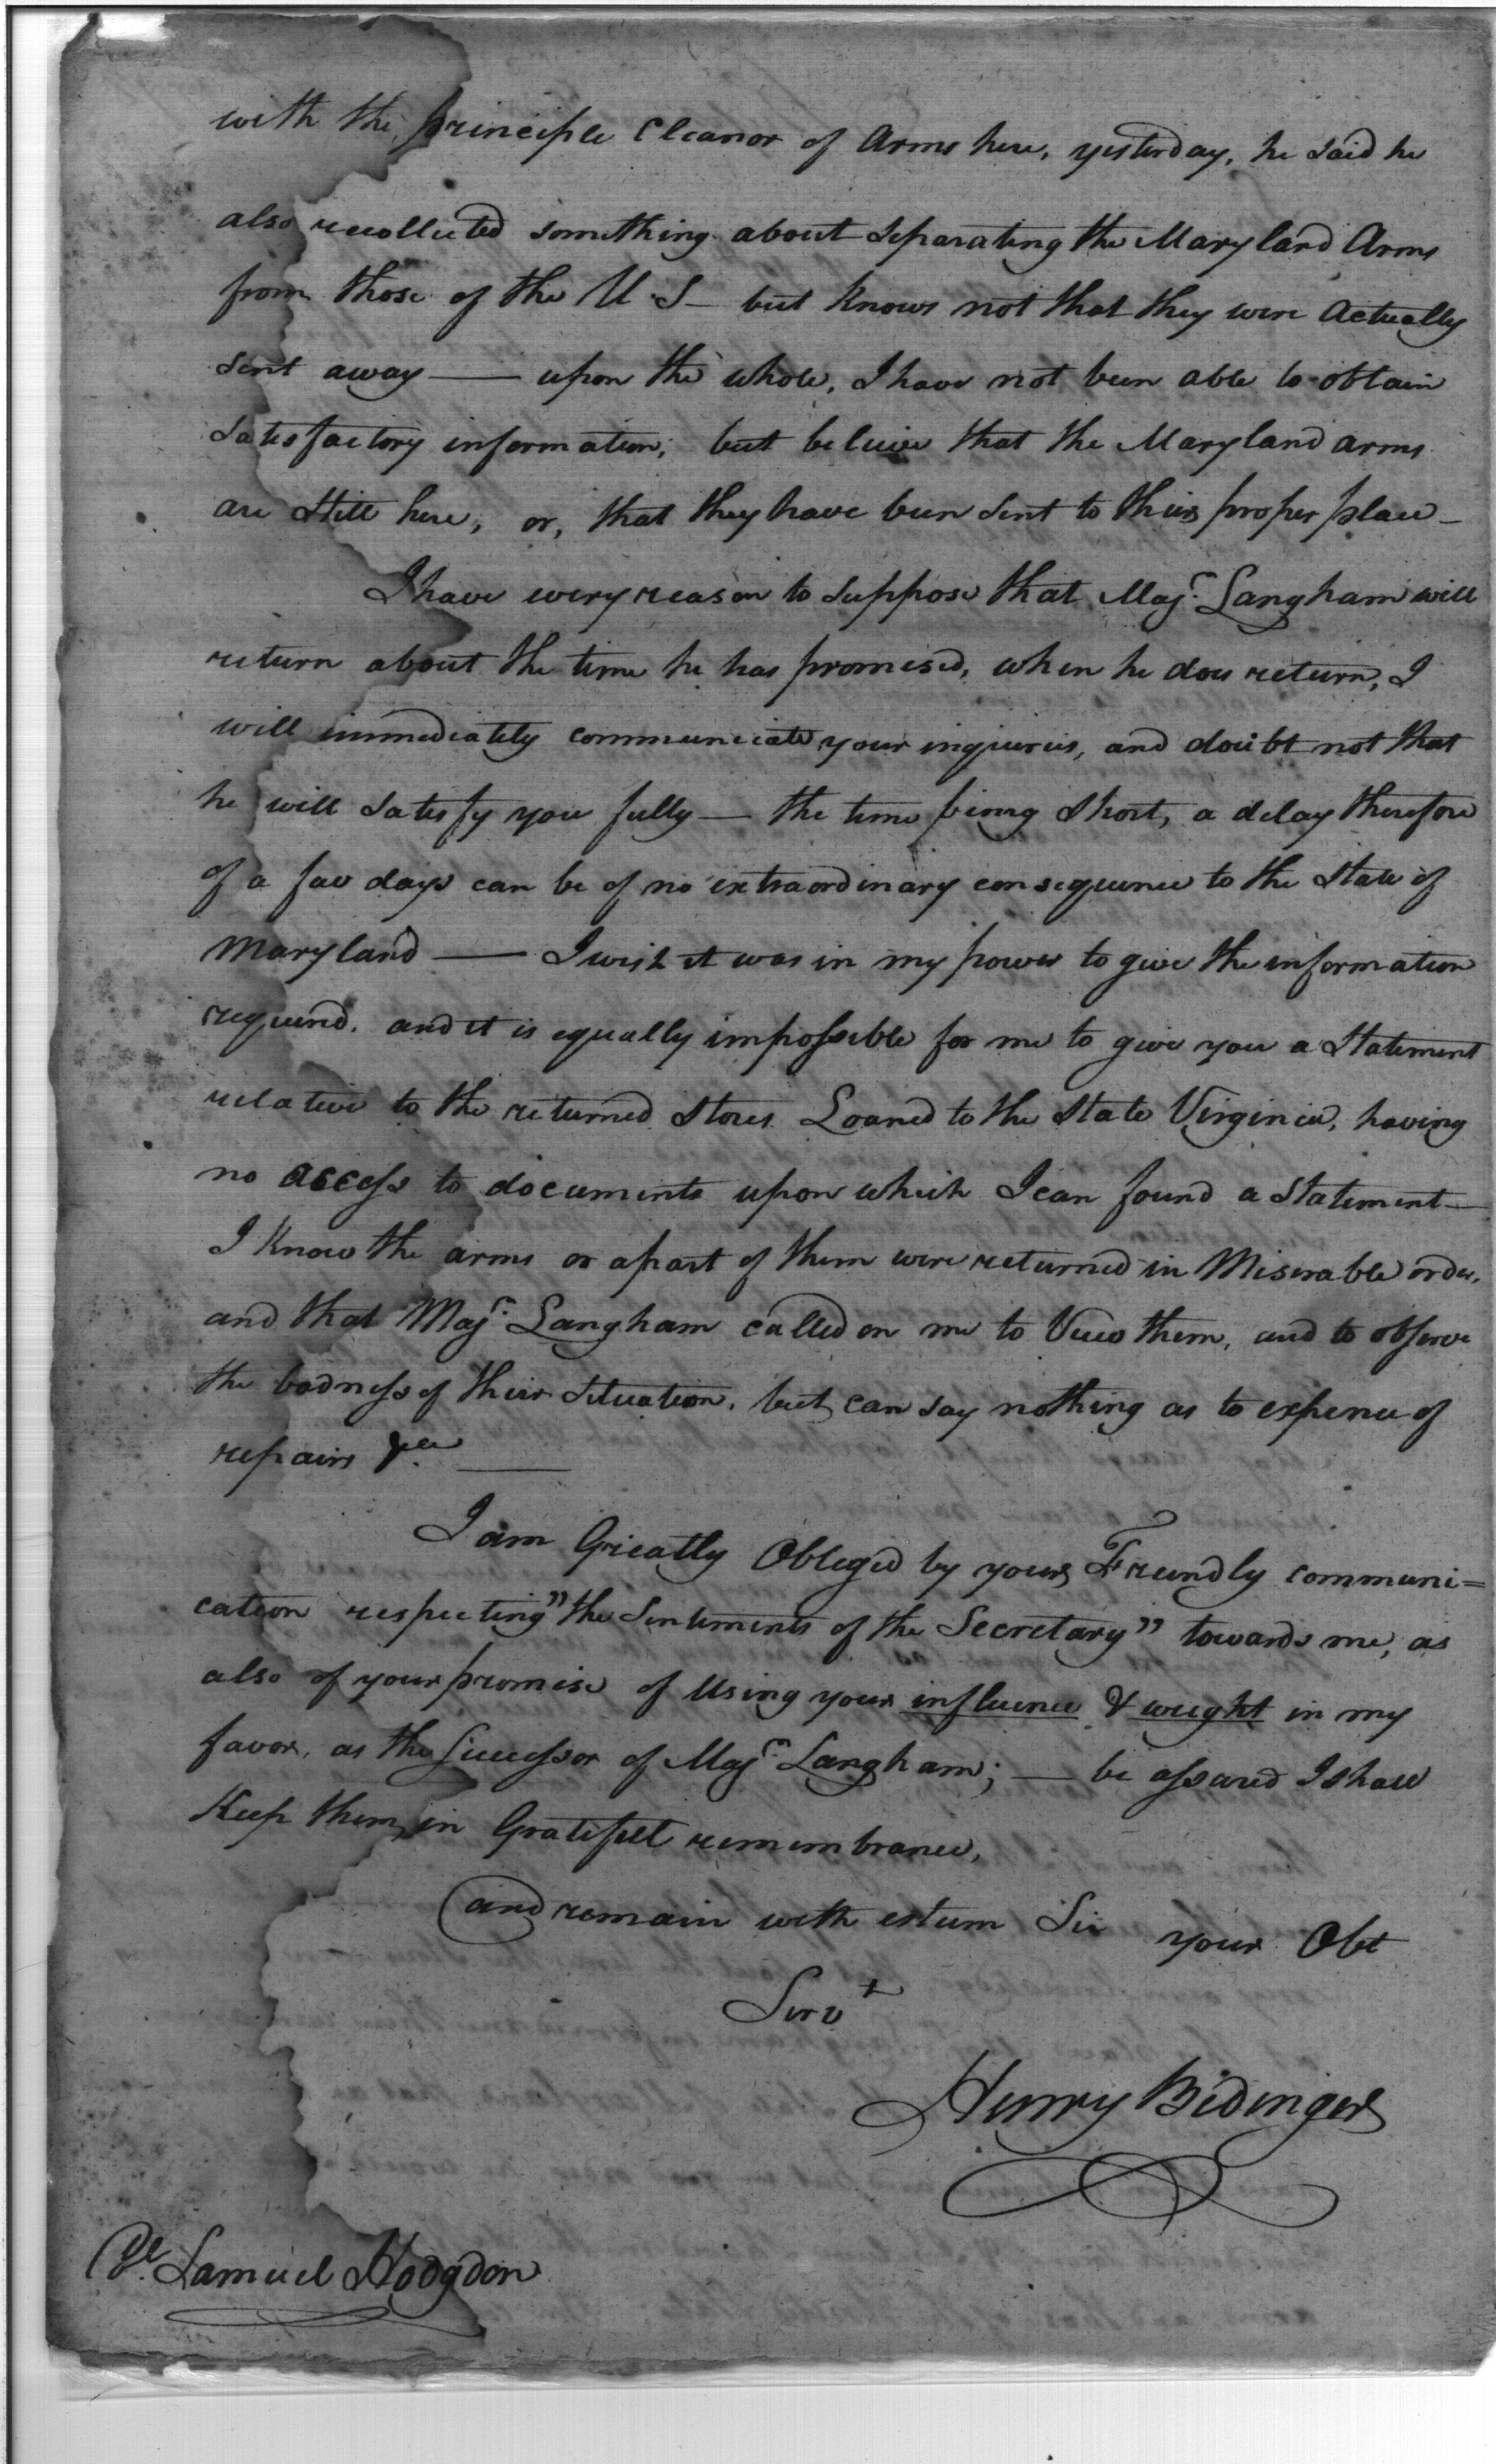 with the principle Cleanor of Arms here, yesterday, he said he
also recollected something about separating the Maryland Arms
from those of the U S — but knows not that they were Actually
sent away — upon the whole, I have not been able to obtain
satisfactory information; but beleive that the Maryland arms
are still here, or, that they have been sent to their proper place —
I have every reason to suppose that Majr. Langham will
return about the time he has promised, when he does return, I
will immediately communicate your inquiries, and doubt not that
he will satisfy you fully — the time being short, a delay therefore
of a few days can be of no extraordinary consequence to the State of
Maryland — I wish it was in my power to give the information
required. and it is equally impossible for me to give you a Statement
relative to the returned Stores Loaned to the State Virginia, having
no access to documents upon which I can found a Statement —
I know the arms or a part of them were returned in Miserable order,
and that Majr. Langham called on me to View them, and to observe
the badness of their Situation, but can say nothing as to expence of
repairs &ca. —
I am Greatly Obleged by your Freindly communi=
cation respecting "the Sentiments of the Secretary" towards me, as
also of your promise of Using your influence & weight in my
favor, as the Successor of Majr. Langham; — be assured I shall
Keep them in Gratefull remembrance,
and remain with esteem Sir your Obt
Servt
Henry Bedinger
Samuel Hodgdon